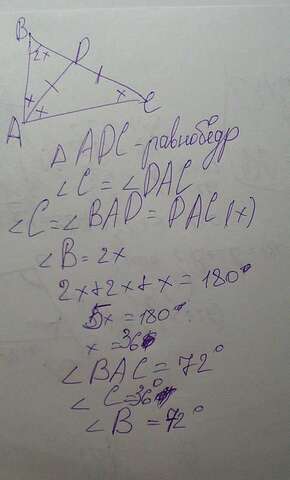 B
2x
D
x
x
x
C
A
Δ ADC - равнобедр
∠C = ∠DAC
∠C = ∠BAD = DAC (x)
∠B = 2x
2x+2x+x = 180°
5x = 180°
x = 36
∠BAC = 72°
∠C = 36°
∠B = 72°